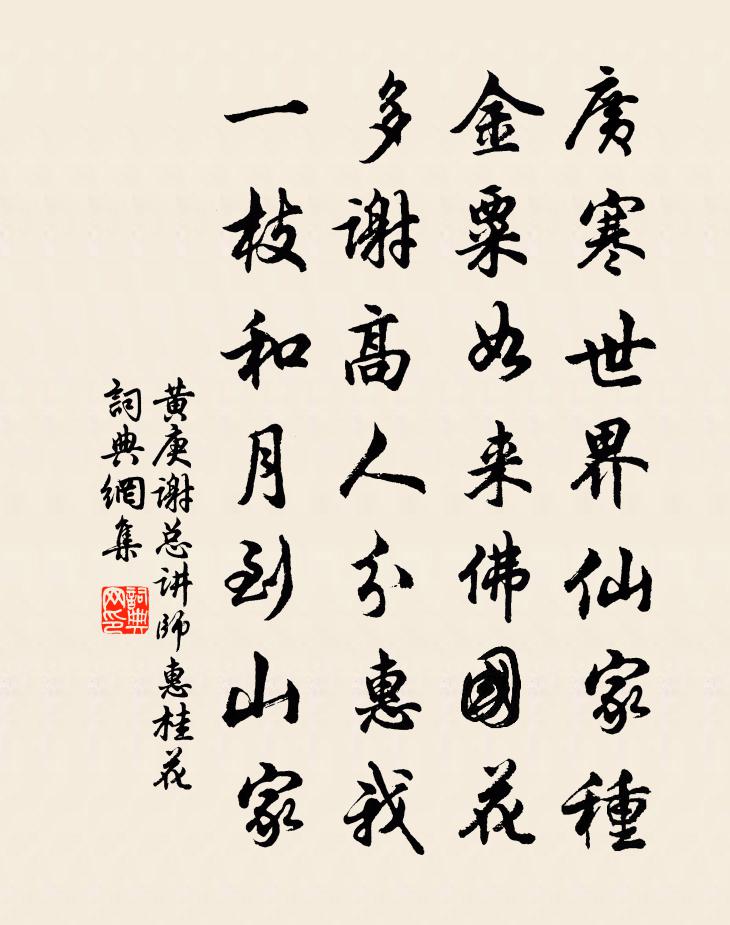 廣寒世界仙家種
金粟如来佛國花
多謝高人分惠我
一枝和月到山家
黄庚谢总讲師惠桂花
詞典網集
詞典网印